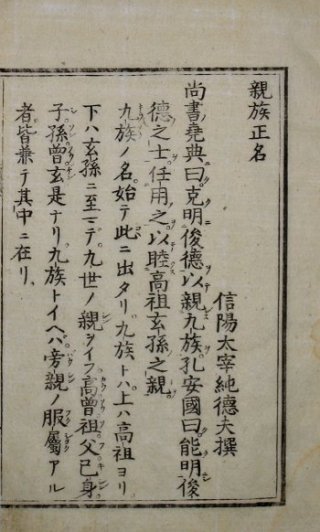 親族正名
信陽太宰純德夫撰
尚書堯典曰克明俊德以親九族孔安國曰能明俊
德之士任用之以睦高祖玄孫之親
九族ノ名始テ此ニ出タリ九族トハ上ハ高祖ヨリ
下ハ玄孫ニ至マデ九世ノ親ヲイフ高曾祖父己身
子孫曾玄是ナリ九族トイヘハ旁親ノ服屬アル
者皆兼テ其中ニ在リ